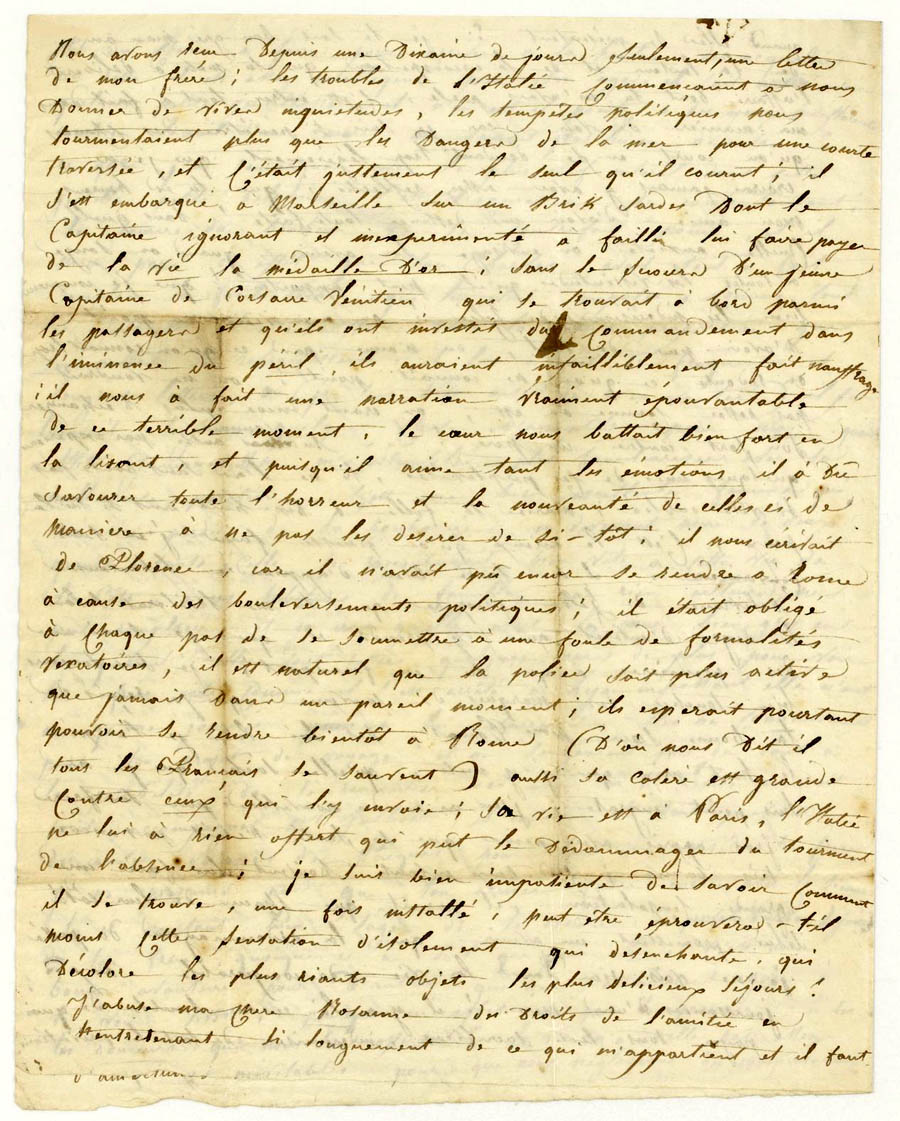 Nous avons reçu Depuis une Dixaine de jours seulement, une lettre
de mon frére ; les troubles de l'Italie Commencaient à nous
Donner de vives inquietudes, les tempêtes politiques nous
tourmentaient plus que les Dangers de la mer pour une courte
traversée, et C'était justement le seul qu'il courut ; il
s'est embarqué a Marseille sur un Brik Sardes Dont le
Capitaine ignorant et inexperimenté a faillir lui faire payer
de la vie la médaille D'or ; sans le secours D'un jeune
Capitaine de Corsaire Vénitien qui se trouvait à bord parmi
les passagers et qu'ils ont investit du Commandement dans
l'iminence du péril, ils auraient infailliblement fait nauffrage
; il nous à fait une narration vraiment épouvantable
de ce terrible moment, le cœur nous battait bien fort en
la lisant, et puisqu'il aime tant les émotions il à Dû
savourer toute l'horreur et la nouveauté de celles ci de
maniere à ne pas les desirer de si-tôt ; il nous écrivait
de Florence, car il n'avait pû encor se rendre a Rome
à cause des bouleversements politiques ; il était obligé
à Chaque pas de se soumettre à une foule de formalités
vexatoires, il est naturel que la police soit plus active
que jamais Dans un pareil moment ; ils esperait pourtant
pouvoir se rendre bientôt à Rome (D'où nous Dit il
tous les Français se sauvent) aussi sa colère est grande
Contre ceux qui l'y envoie ; sa vie est à Paris, l'Italie
ne lui à rien offert qui put le Dédommager du tourment
de l'absence ; je suis bien impatiente de savoir Comment
il se trouve, une fois installé, peut être éprouvera-t-il
moins Cette sensation d'isolement qui désenchante, qui
Décolore les plus riants objets les plus delicieux séjours !
J'abuse ma chere Rosanne des Droits de l'amitié en
t'entretenant si longuement de ce qui m'appartient et il faut